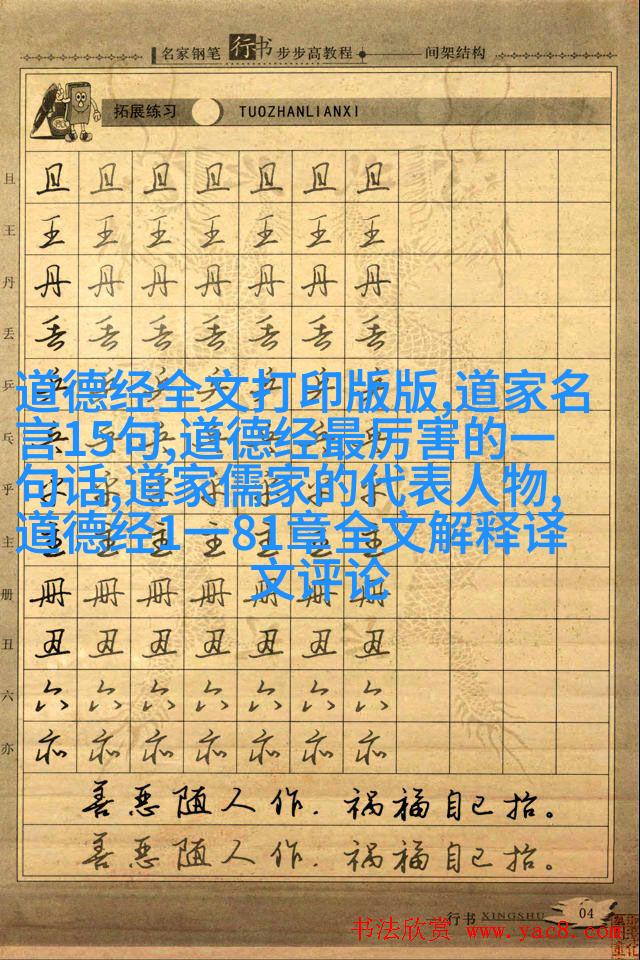 名家钢笔行书步步高教程 间架结构
拓展练习 TUOZHANLIANXI
且 且 且 且 且 且 且 且
王 王 王 王 王 王 王 王
丹 丹 丹 丹 丹 丹 丹 丹
丢 丢 丢 丢 丢 丢 丢 丢
乒 乒 乒 乒 乒 乒 乒 乒
道德经全文打印版版,道家名
言15句,道德经最厉害的一
句话,道家儒家的代表人物,
道德经1一81章全文解释译
文评论
乓
乎
主 主 主 主 主 主 主 主
册 册 册 册 册 册 册 册
丑 丑 丑 丑 丑 丑 丑 丑
六 六 六 六 六 六 六 六
亦 亦 亦 亦 亦 亦 亦 亦
善恶随人作.祸福自己招。
善恶随人作.祸福自己招。
行书 XINGSHU 04
书法欣赏 www.yac8.com